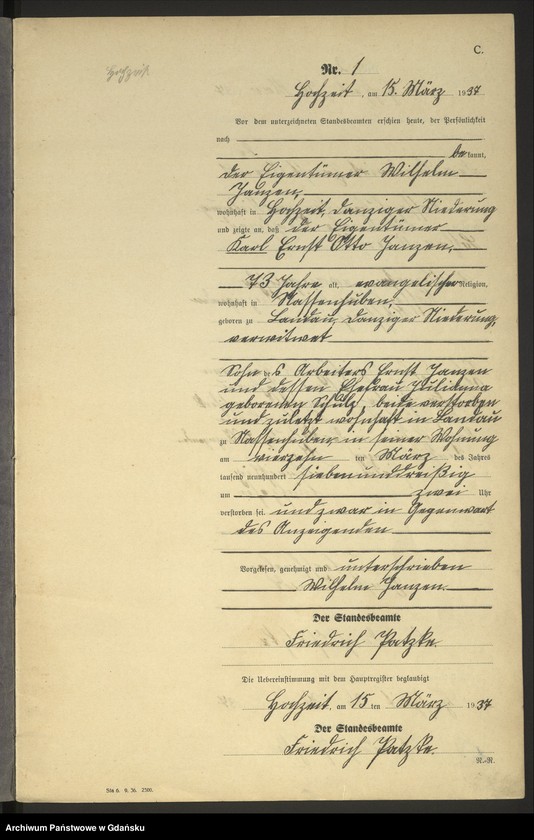 C.
Hochzeit
Nr. 1
Hochzeit, am 15. März 1937
Vor dem unterzeichneten Standesbeamten erschien heute, der Persönlichkeit
nach
bekannt,
der Eigentümer Wilhelm
Janzen,
wohnhaft in Hochzeit, Danziger Niederung
und zeigte an, daß der Eigentümer
Karl Ernst Otto Janzen,
73 Jahre alt, evangelischer Religion,
wohnhaft in Nassenhuben,
geboren zu Landau, Danziger Niederung,
verwitwet
Sohn des Arbeiters Ernst Janzen
und dessen Ehefrau Julianna
geborenen Schulz, beide verstorben
und zuletzt wohnhaft in Landau
zu Nassenhuben in seiner Wohnung
am vierzehn ten März des Jahres
tausend neunhundert siebenunddreißig
um zwei Uhr
verstorben sei. und zwar in Gegenwart
des Anzeigenden
Vorgelesen, genehmigt und unterschrieben
Wilhelm Janzen.
Der Standesbeamte
Friedrich Patzke.
Die Uebereinstimmung mit dem Hauptregister beglaubigt
Hochzeit, am 15 ten März 1937
Der Standesbeamte
Friedrich Patzke.
N.-R.
Sta 6. 9. 36. 2500.
Archiwum Państwowe w Gdańsku